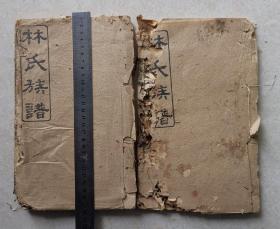 林氏族譜
林氏族譜